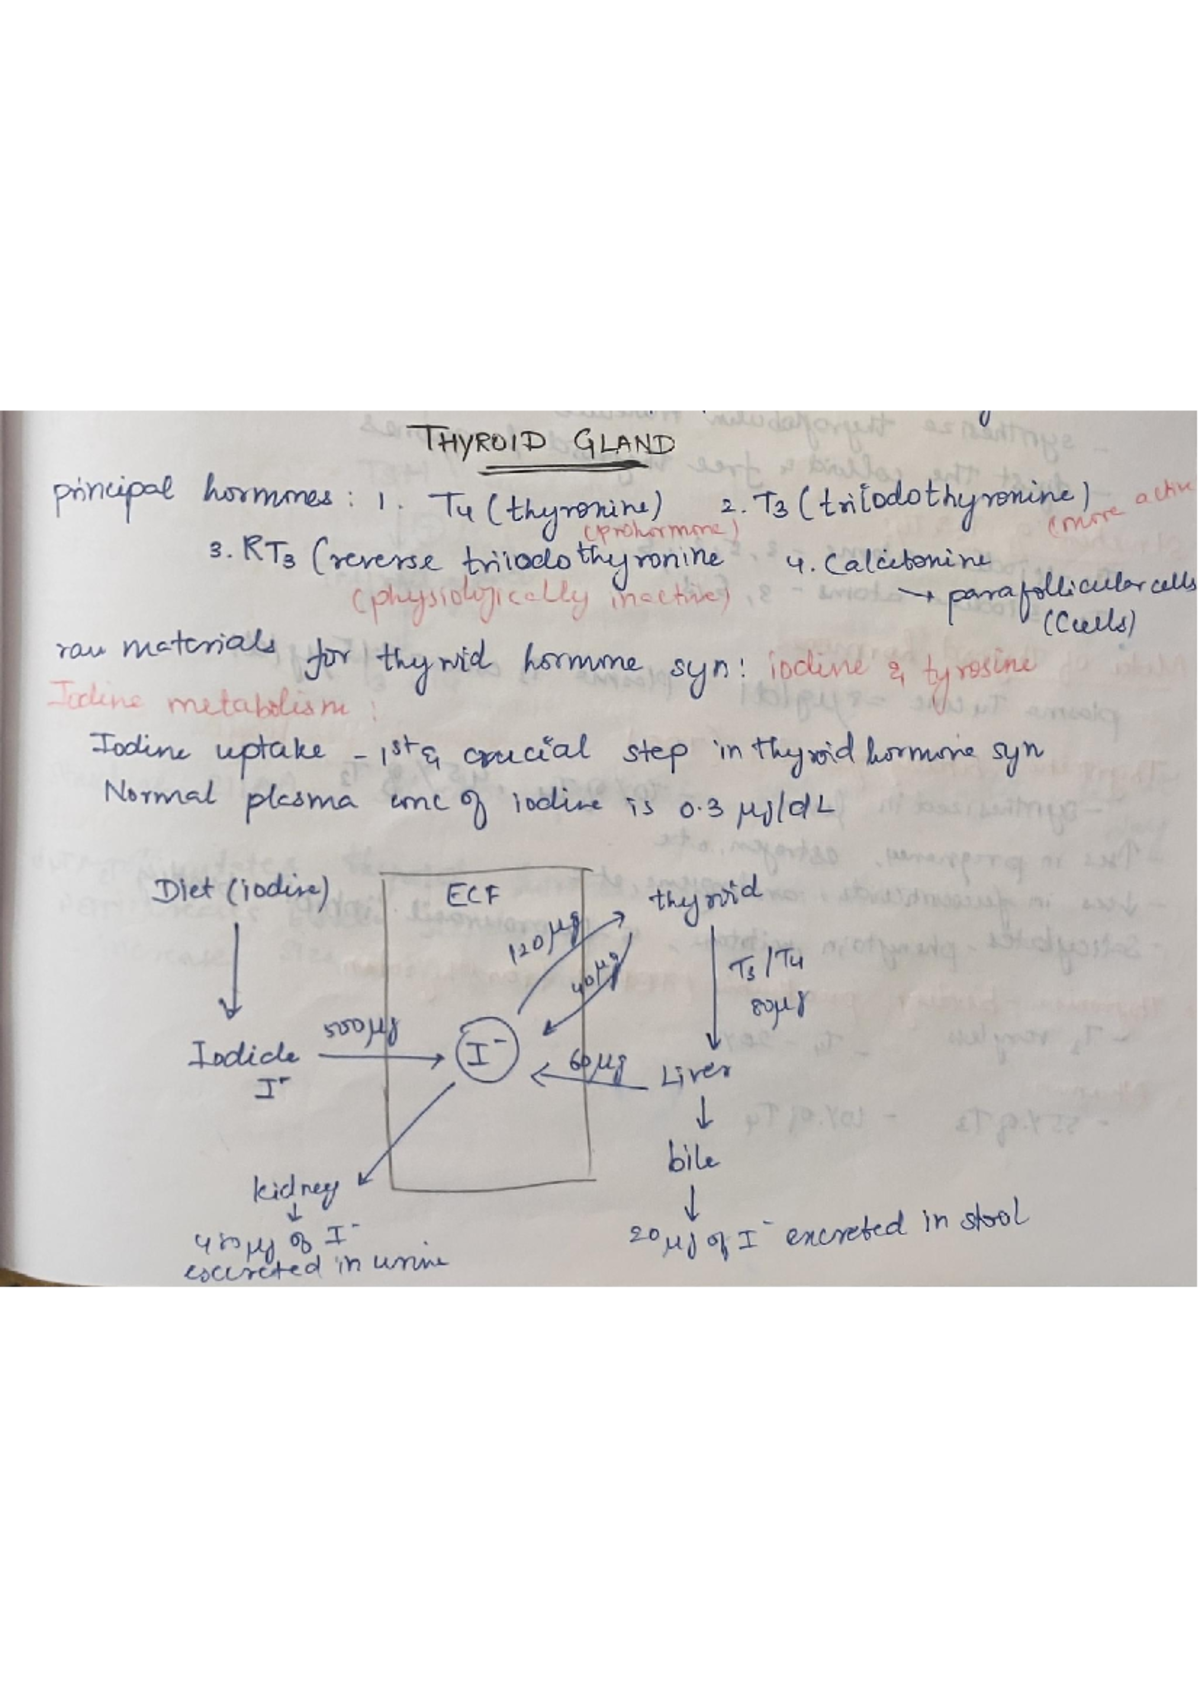 THYROID GLAND
principal hormones: 1. T4 (thyronine) 2. T3 (triiodothyronine)
(prohormone) (more active
3. RT3 (reverse triiodothyronine 4. Calcitonine
(physiologically inactive) → parafollicular cells
(C cells)
raw materials for thyroid hormone syn: iodine & tyrosine
Iodine metabolism:
Iodine uptake - 1st & crucial step in thyroid hormone syn
Normal plasma conc of iodine is 0.3 µg/dL
Diet (iodine) ECF thyroid
120 µg
40 µg
T3/T4
80 µg
Iodide 500 µg I⁻ 60 µg Liver
I⁻
bile
kidney
480 µg of I⁻ 20 µg of I⁻ excreted in stool
excreted in urine